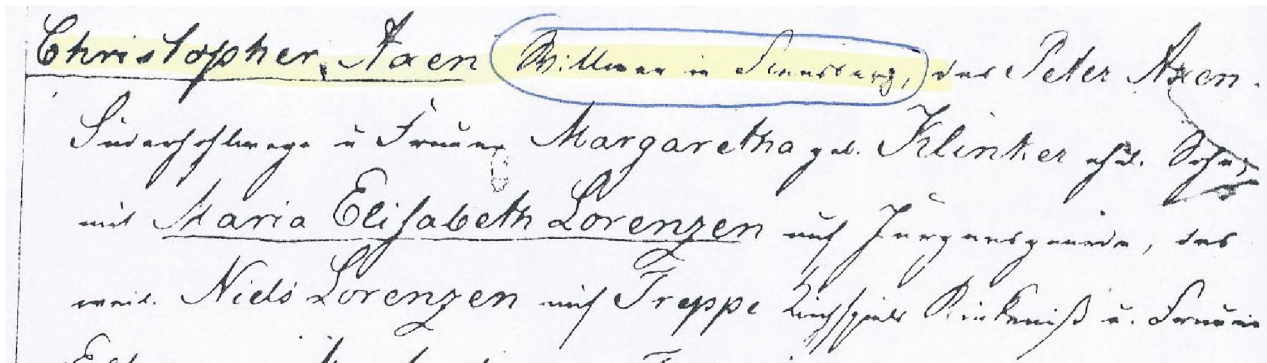 Christopher Axen Wittwer in Flensburg, des Peter Axen
Süderhohlwege u Frauen Margaretha geb. Klinker ehel. Sohn,
mit Maria Elisabeth Lorenzen auf Jürgensgaarde, des
weil. Niels Lorenzen auf Treppe Kirchspiels Rinkeniß u. Frauen